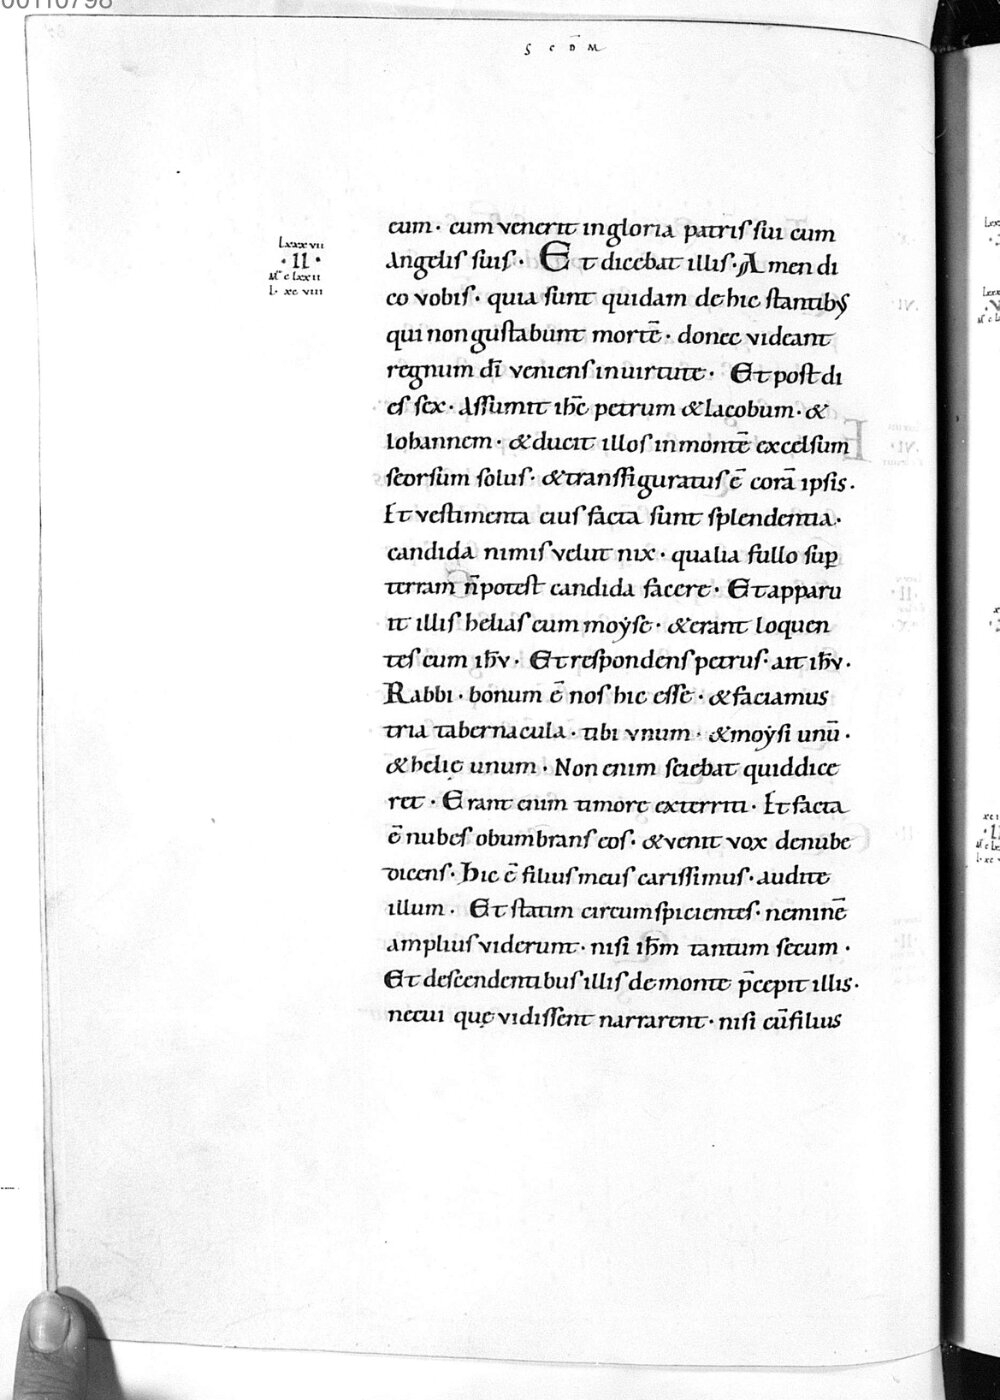 00110798
S C D̄ M
lxxxvii
· II ·
M̄ clxxii
L · xcviii
eum · cum venerit in gloria patris sui cum
Angelis suis · Et dicebat illis · Amen di
co vobis · quia sunt quidam de hic stantib;
qui non gustabunt mortē · donec videant
regnum dī veniens in uirtute · Et post di
es sex · Assumit ihc̄ petrum & Iacobum · &
Iohannem · & ducit illos in montē excelsum
seorsum solus · & transfiguratus ē corā ipsis ·
Et vestimenta eius facta sunt splendentia ·
candida nimis velut nix · qualia fullo sup̄
terram n̄ potest candida facere · Et apparu
it illis helias cum moẏse · & erant loquen
tes cum ih̄v · Et respondens petrus · ait ih̄v ·
Rabbi · bonum ē nos hic esse · & faciamus
tria tabernacula · tibi vnum · & moẏsi unū ·
& helię unum · Non enim sciebat quid dice
ret · Erant enim timore exterriti · Et facta
ē nubes obumbrans eos · & venit vox de nube
dicens · Hic ē filius meus carissimus · audite
illum · Et statim circumspicientes · neminē
amplius viderunt · nisi ih̄m tantum secum ·
Et descendentibus illis de monte p̄cepit illis ·
ne cui quę vidissent narrarent · nisi cū filius